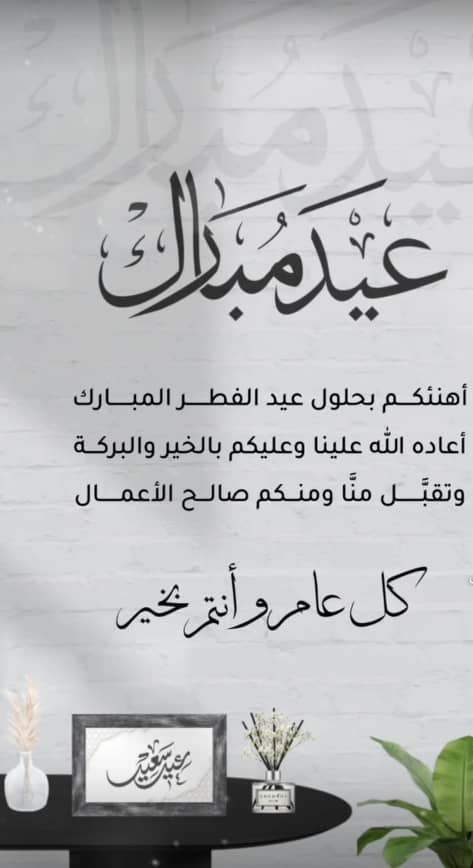 عيد مبارك
عِيدٌ مُبَارَك
أهنئكم بحلول عيد الفطر المبارك
أعاده الله علينا وعليكم بالخير والبركة
وتقبَّل منَّا ومنكم صالح الأعمال
كل عام و أنتم بخير
عيد سعيد